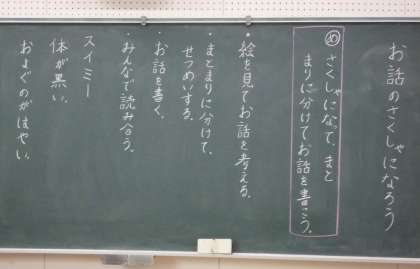 お話のさくしゃになろう
め さくしゃになって、まと
まりに分けてお話を書こう。
・絵を見てお話を考える。
・まとまりに分けて、
せつめいする。
・お話を書く。
・みんなで読み合う。
スイミー
体が黒い。
およぐのがはやい。